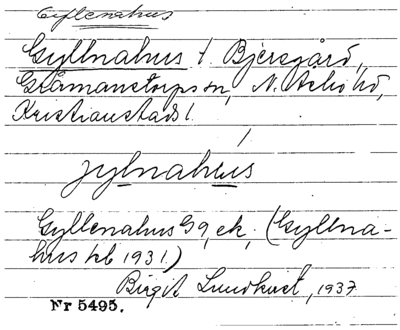 Gyllenahus
Gyllnahus t. Bjersgård,
Gråmanstorps sn, N. Åsbo hd,
Kristianstads l.
jylnahus
Gyllenahus G9, ek, (Gyllna-
hus hb 1931.)
Birgit Lundkvist, 1937.
Nr 5495.